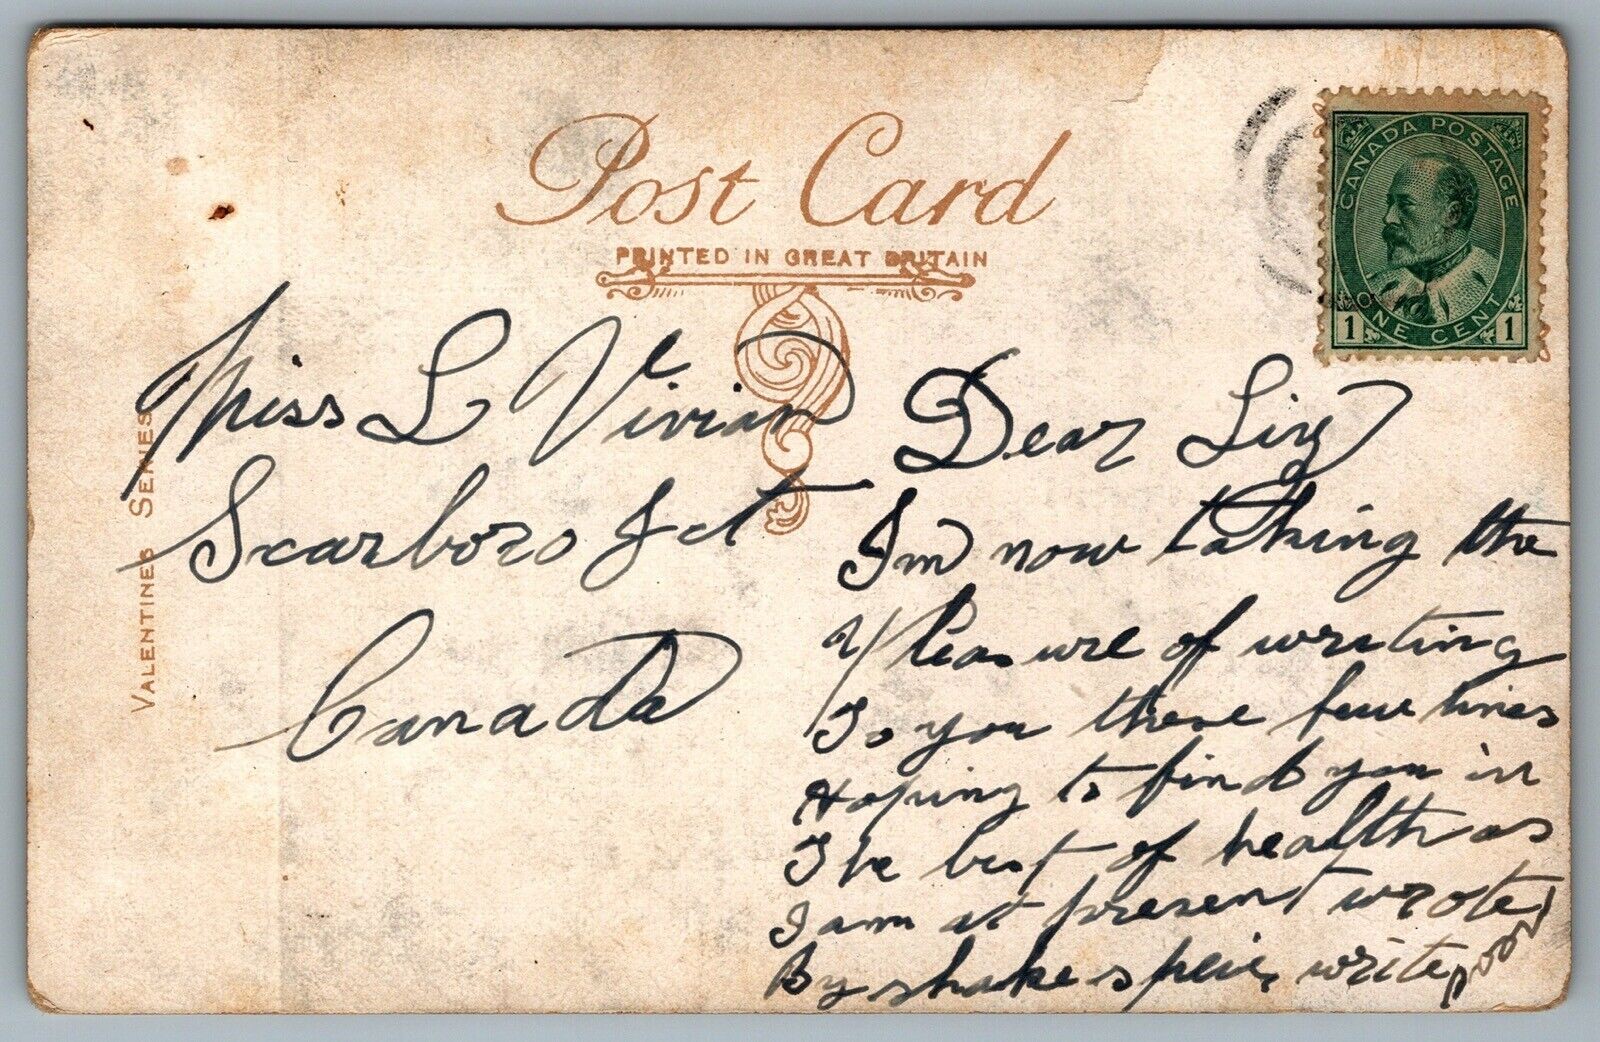 Post Card
PRINTED IN GREAT BRITAIN
CANADA POSTAGE
1 ONE CENT 1
VALENTINES SERIES
Miss L Vivian
Scarboro Jct
Canada
Dear Liz
Im now taking the
Pleasure of writing
To you these few lines
Hoping to find you in
The best of health as
I am at present wrote
By shakespeie, write soon